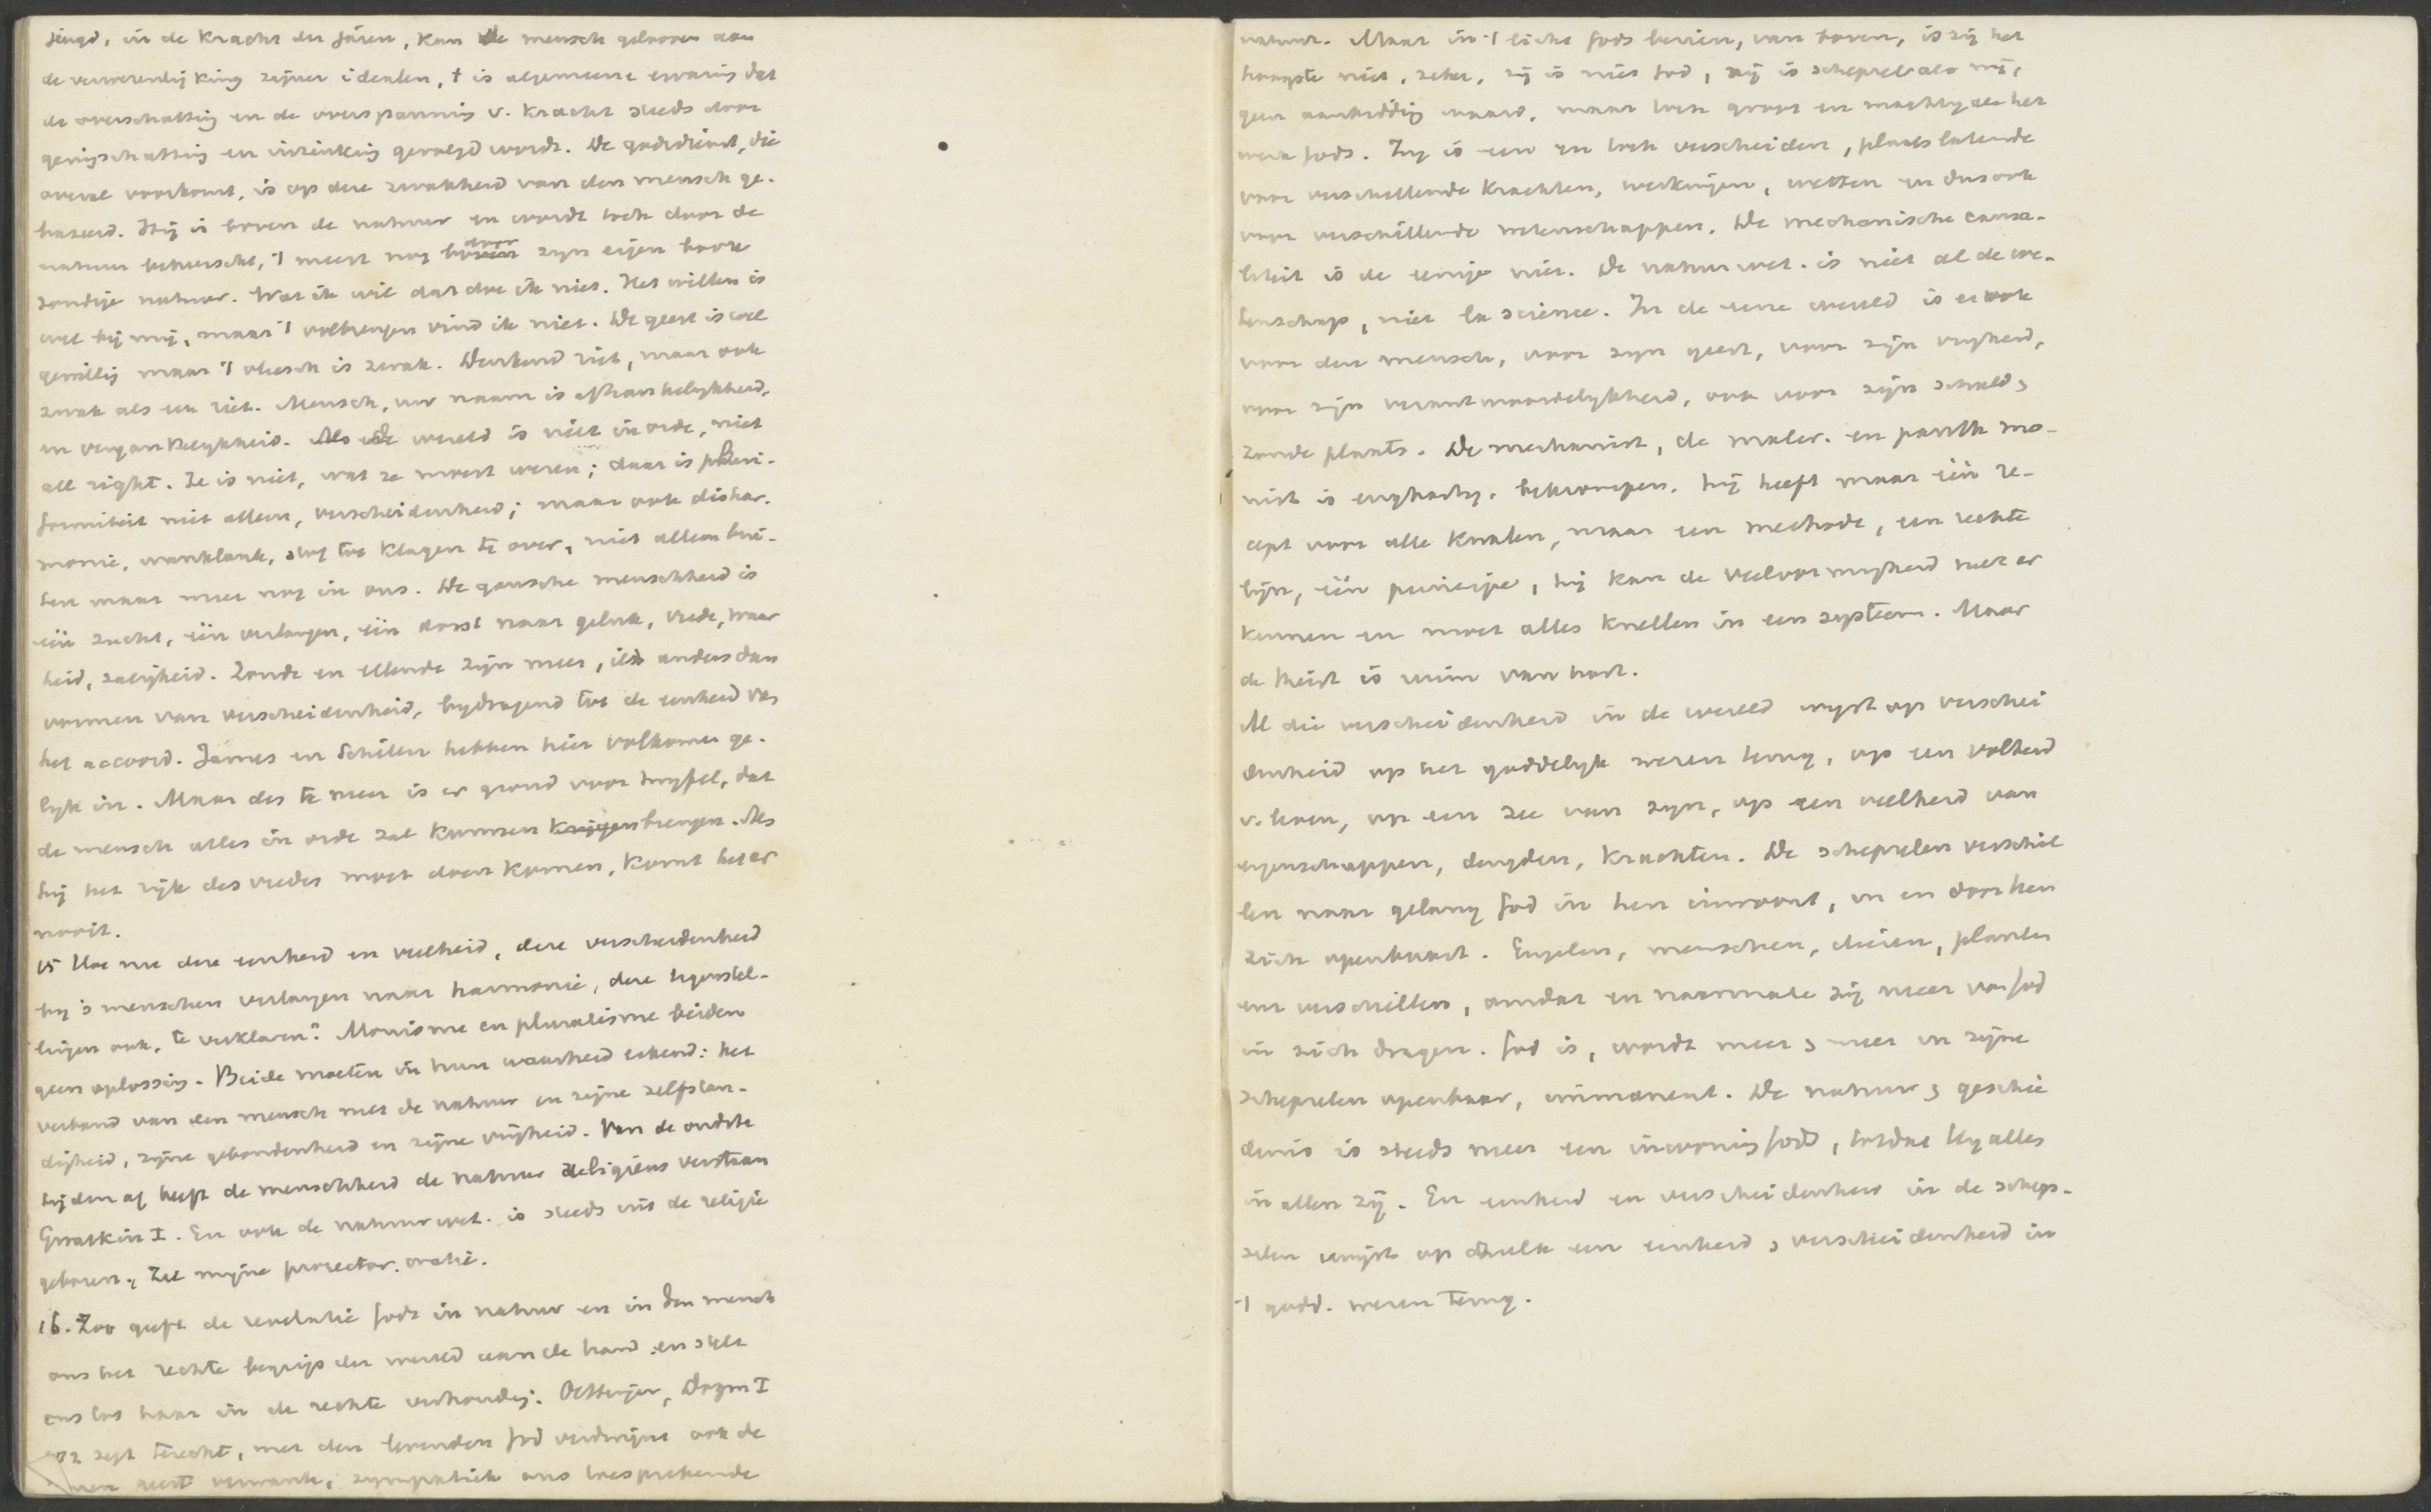 jeugd, in de kracht der jaren, kan de mensch gelooven aan
de verwezenlijking zijner idealen, 't is algemeene ervaring dat
de overschatting en de overspanning v. kracht steeds door
geringschatting en inzinking gevolgd wordt. De godsdienst, die
overal voorkomt, is op deze zwakheid van den mensch ge-
baseerd. Hij is boven de natuur en wordt toch door de
natuur beheerscht, 't meest nog door zijn eigen booze
zondige natuur. Wat ik wil dat doe ik niet. Het willen is
wel bij mij, maar 't volbrengen vind ik niet. De geest is wel
gewillig maar 't vleesch is zwak. Denkend riet, maar ook
zwak als een riet. Mensch, uw naam is afhankelijkheid,
en vergankelijkheid. de wereld is niet in orde, niet
all right. Ze is niet, wat ze moest wezen; daar is pluri-
formiteit niet alleen, verscheidenheid; maar ook dishar-
monie, wanklank, stof tot klagen te over, niet alleen bui-
ten maar meer nog in ons. De gansche menschheid is
één zucht, één verlangen, één dorst naar geluk, vrede, waar
heid, zaligheid. Zonde en ellende zijn meer, iets anders dan
vormen van verscheidenheid, bijdragend tot de eenheid van
het accoord. James en Schiller hebben hier volkomen ge-
lijk in. Maar des te meer is er grond voor twijfel, dat
de mensch alles in orde zal kunnen krijgen brengen. Als
hij het rijk des vredes moet doen komen, komt het er
nooit.
15 Hoe nu deze eenheid en veelheid, deze verscheidenheid
bij 's menschen verlangen naar harmonie, deze tegenstel-
lingen ook, te verklaren? Monisme en pluralisme beiden
geen oplossing. Beide moeten in hun waarheid erkend: het
verband van den mensch met de natuur en zijne zelfstan-
digheid, zijne gebondenheid en zijne vrijheid. Van de oudste
tijden af heeft de menschheid de natuur religieus verstaan
Gwatkin I. En ook de natuurwet. is steeds uit de religie
geboren, zie mijne prorector. oratie.
16. Zoo geeft de revelatie Gods in natuur en in den mensch
ons het rechte begrip der wereld aan de hand en stelt
ons tot haar in de rechte verhouding. Oettingen, Dogm I
zegt terecht, met den levenden God verdwijnt ook de
geest verwante, sympathiek ons toesprekende
natuur. Maar in 't licht Gods bezien, van boven, is zij het
hoogste niet, zeker, zij is niet God, zij is schepsel als wij,
geen aanbidding waard, maar toch groot en machtig als het
werk Gods. Zij is een en toch verscheiden, plaats latende
voor verschillende krachten, werkingen, wetten en dus ook
voor verschillende wetenschappen. De mechanische causa-
liteit is de eenige niet. De natuurwet. is niet al de we-
tenschap, niet la science. In de eene wereld is er ook
voor den mensch, voor zijn geest, voor zijn vrijheid,
voor zijn verantwoordelijkheid, ook voor zijn schuld &
zonde plaats. De mechanist, de mater. en panth mo-
nist is enghartig, bekrompen, hij heeft maar één re-
cept voor alle kwalen, maar een methode, een rechte
lijn, één principe, hij kan de veelvormigheid niet er
kennen en moet alles knellen in een systeem. Maar
de theist is ruim van hart.
Al die verscheidenheid in de wereld wijst op verschei
denheid op het goddelijk wezen terug, op een volheid
v. leven, op een zee van zijn, op een veelheid van
eigenschappen, deugden, krachten. De schepselen verschil
len naar gelang God in hen inwoont, in en door hen
zich openbaart. Engelen, menschen, dieren, planten
enz verschillen, omdat en naarmate zij meer van God
in zich dragen. God is, wordt meer & meer in zijne
schepselen openbaar, immanent. De natuur & geschie
denis is steeds meer een inwoning Gods, totdat Hij alles
in allen zij. En eenheid en verscheidenheid in de schep-
selen wijst op zulk een eenheid & verscheidenheid in
't godd. wezen terug.